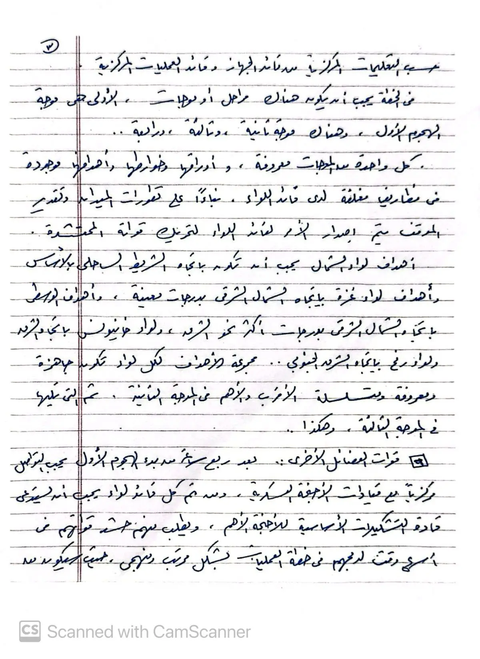 ٣
حسب التعليمات المركزية من قائد الجهاز وقائد العمليات المركزية .
في الخطة يجب أن يكون هناك مراحل أو موجات ، الأولى هي موجة
الهجوم الأول ، وهناك موجة ثانية ، وثالثة ، ورابعة ..
. كل واحدة من الموجات معروفة ، و أوراقها وخرائطها وأهدافها موجودة
في مظاريف مغلقة لدى قائد اللواء . بناءً على تطورات الميدان وتقدير
الموقف يتم إصدار الأمر لقائد اللواء لتحريك قواته المحتشدة .
أهداف لواء الشمال يجب أن تكون باتجاه الشريط الساحلي بالأساس
وأهداف لواء غزة باتجاه الشمال الشرقي بدرجات معينة ، وأهداف الوسطى
باتجاه الشمال الشرقي بدرجات أكثر نحو الشرق ، ولواء خانيونس باتجاه الشرق
ولواء رفح باتجاه الشرق الجنوبي .. مجموعة الأهداف لكل لواء تكون جاهزة
ومعروفة ومتسلسلة الأقرب والأهم في الموجة الثانية . ثم التي تليها
في الموجة الثالثة ، وهكذا ..
قوات الفصائل الأخرى : بعد ربع ساعة من بدء الهجوم الأول يجب التواصل
مركزياً مع قيادات الأجنحة العسكرية ، ومن ثم كل قائد لواء يجب أن يستدعي
قادة التشكيلات الأساسية للأجنحة الأهم ، ويطلب منهم حشد قواتهم في
أسرع وقت لدمجهم في خطة العمليات بشكل مرتب ومنهجي ، حيث سيكون من
CS Scanned with CamScanner